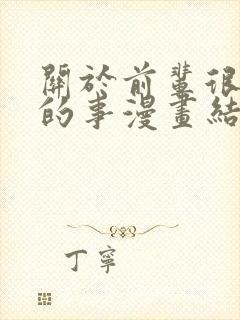 關於前輩很
的事漫畫結
丁寧